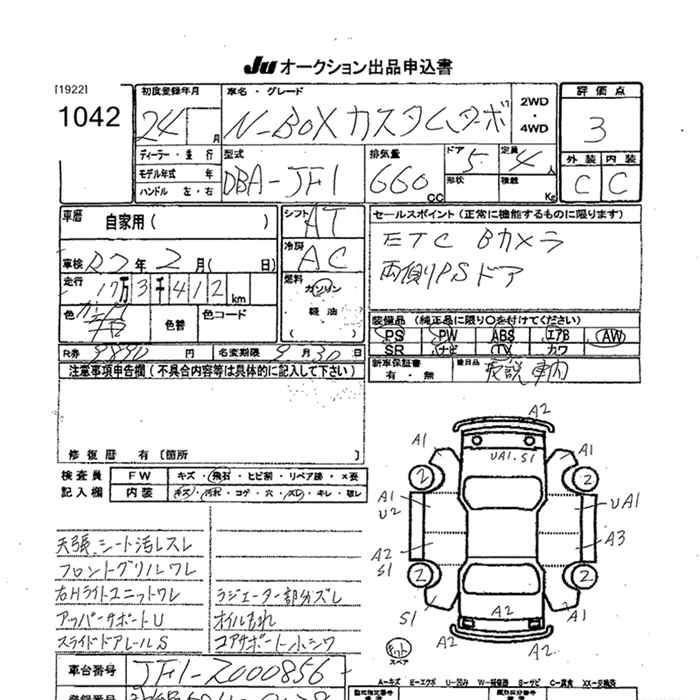 Ju オークション出品申込書
[1922]
1042
初度登録年月
24 月
車名・グレード
N-BOXカスタムターボ
2WD
・
4WD
評価点
3
ディーラー・並行
モデル年式 年
ハンドル 左・右
型式
DBA-JF1
排気量
660 CC
ドア 5
形状
定員 4 人
積載 Kg
外装 内装
C C
車歴
自家用( )
シフト AT
冷房 AC
セールスポイント(正常に機能するものに限ります)
ETC Bカメラ
両側PSドア
車検 R7年2月( 日)
走行 17万3千412 km
燃料
ガソリン
軽油
( )
色
色替
色コード
装備品(純正品に限り○を付けてください)
PS PW ABS エアB AW
SR ナビ TV カワ
R券 9890 円
名変期限 9月30日
新車保証書
有・無
後日品
取説 車内
注意事項申告欄(不具合内容等は具体的に記入して下さい)
修復歴 有[箇所 ]
検査員
記入欄
FW キズ・飛石・ヒビ割・リペア跡・×要
内装 キズ・汚れ・コゲ・穴・スレ・キレ・破レ
天張、シート汚レスレ
フロントグリルワレ
右Hライトユニットワレ
アッパーサポートU
スライドドアレールS
ラジエーター部分ズレ
オイルもれ
コアサポート小シワ
A2
A1 UA1.S1 A1
2 2
A1 UA1
U2
A2 A3
S1
2 2
S1 A2 A1
A2
スペア
車台番号 JF1-2000856
A-キズ E-エクボ U-凹み W-補修跡 S-サビ C-腐食 XX-交換済
登録番号